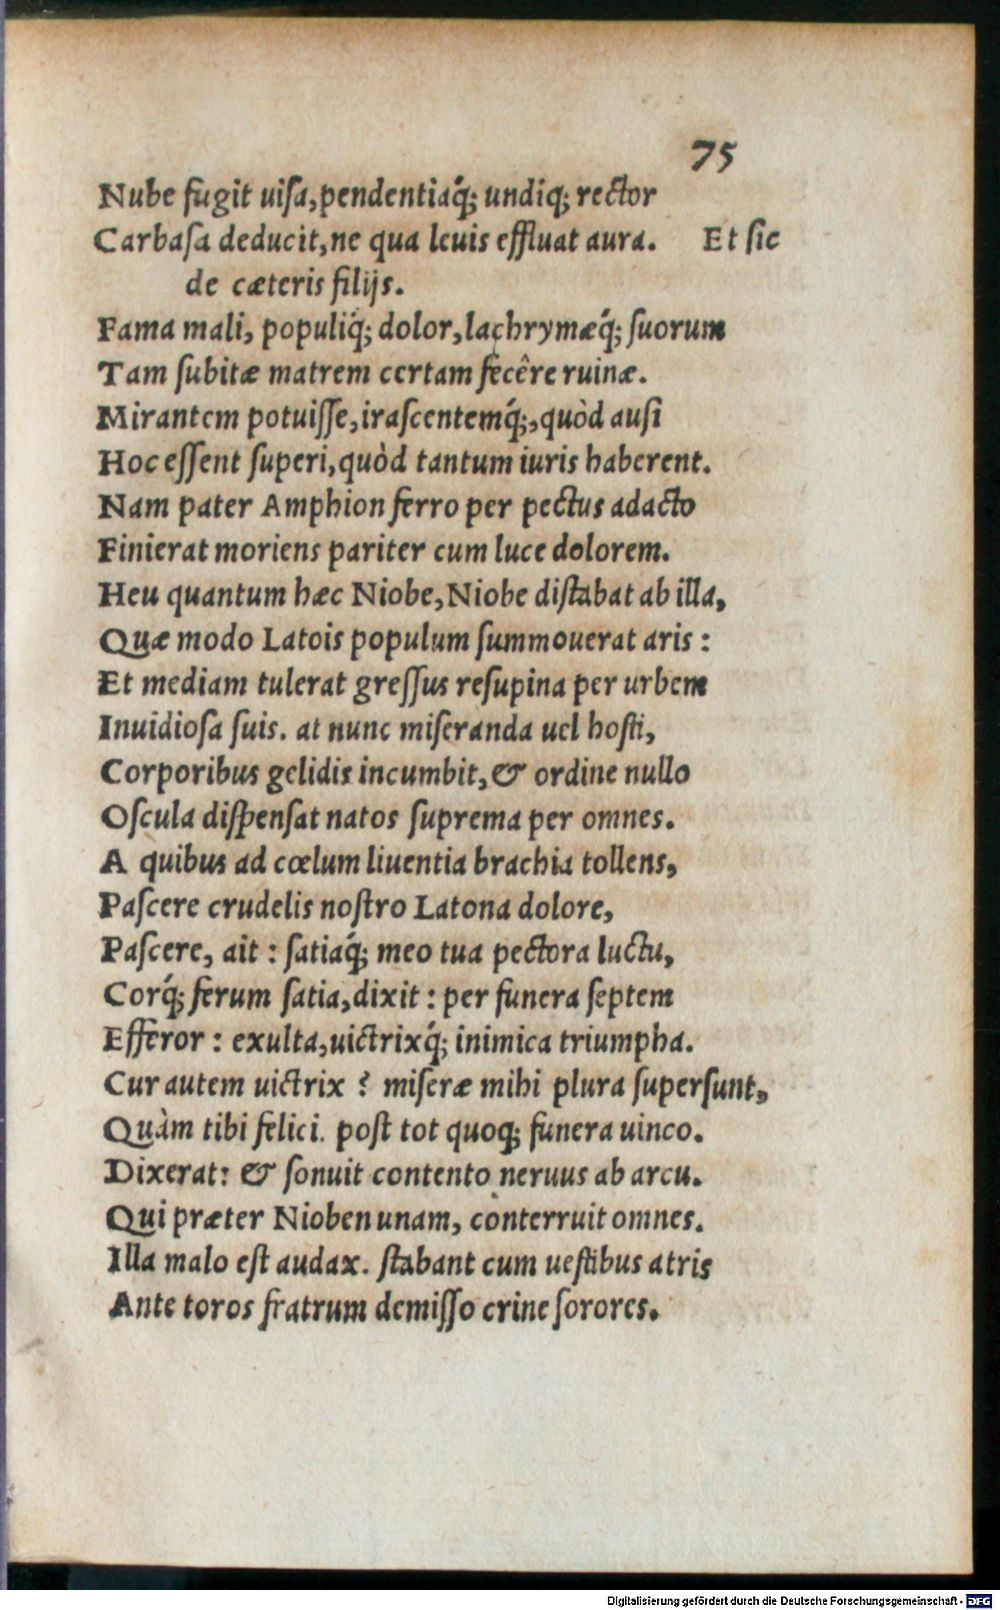 75
Nube fugit uiſa, pendentiaq́; undiq; rector
Carbaſa deducit, ne qua leuis effluat aura. Et ſic
de cæteris filijs.
Fama mali, populiq́; dolor, lachrymæq́; ſuorum
Tam ſubitæ matrem certam fecêre ruinæ.
Mirantem potuiſſe, iraſcentemq́;, quòd auſi
Hoc eſſent ſuperi, quòd tantum iuris haberent.
Nam pater Amphion ferro per pectus adacto
Finierat moriens pariter cum luce dolorem.
Heu quantum hæc Niobe, Niobe diſtabat ab illa,
Quæ modo Latois populum ſummouerat aris :
Et mediam tulerat greſſus reſupina per urbem
Inuidioſa ſuis. at nunc miſeranda uel hoſti,
Corporibus gelidis incumbit, & ordine nullo
Oſcula diſpenſat natos ſuprema per omnes.
A quibus ad cœlum liuentia brachia tollens,
Paſcere crudelis noſtro Latona dolore,
Paſcere, ait : ſatiaq́; meo tua pectora luctu,
Corq́; ferum ſatia, dixit : per funera ſeptem
Efferor : exulta, uictrixq́; inimica triumpha.
Cur autem uictrix ? miſeræ mihi plura ſuperſunt,
Quàm tibi felici. poſt tot quoq; funera uinco.
Dixerat: & ſonuit contento neruus ab arcu.
Qui præter Nioben unam, conterruit omnes.
Illa malo eſt audax. ſtabant cum ueſtibus atris
Ante toros fratrum demiſſo crine ſorores.
Digitalisierung gefördert durch die Deutsche Forschungsgemeinschaft - DFG